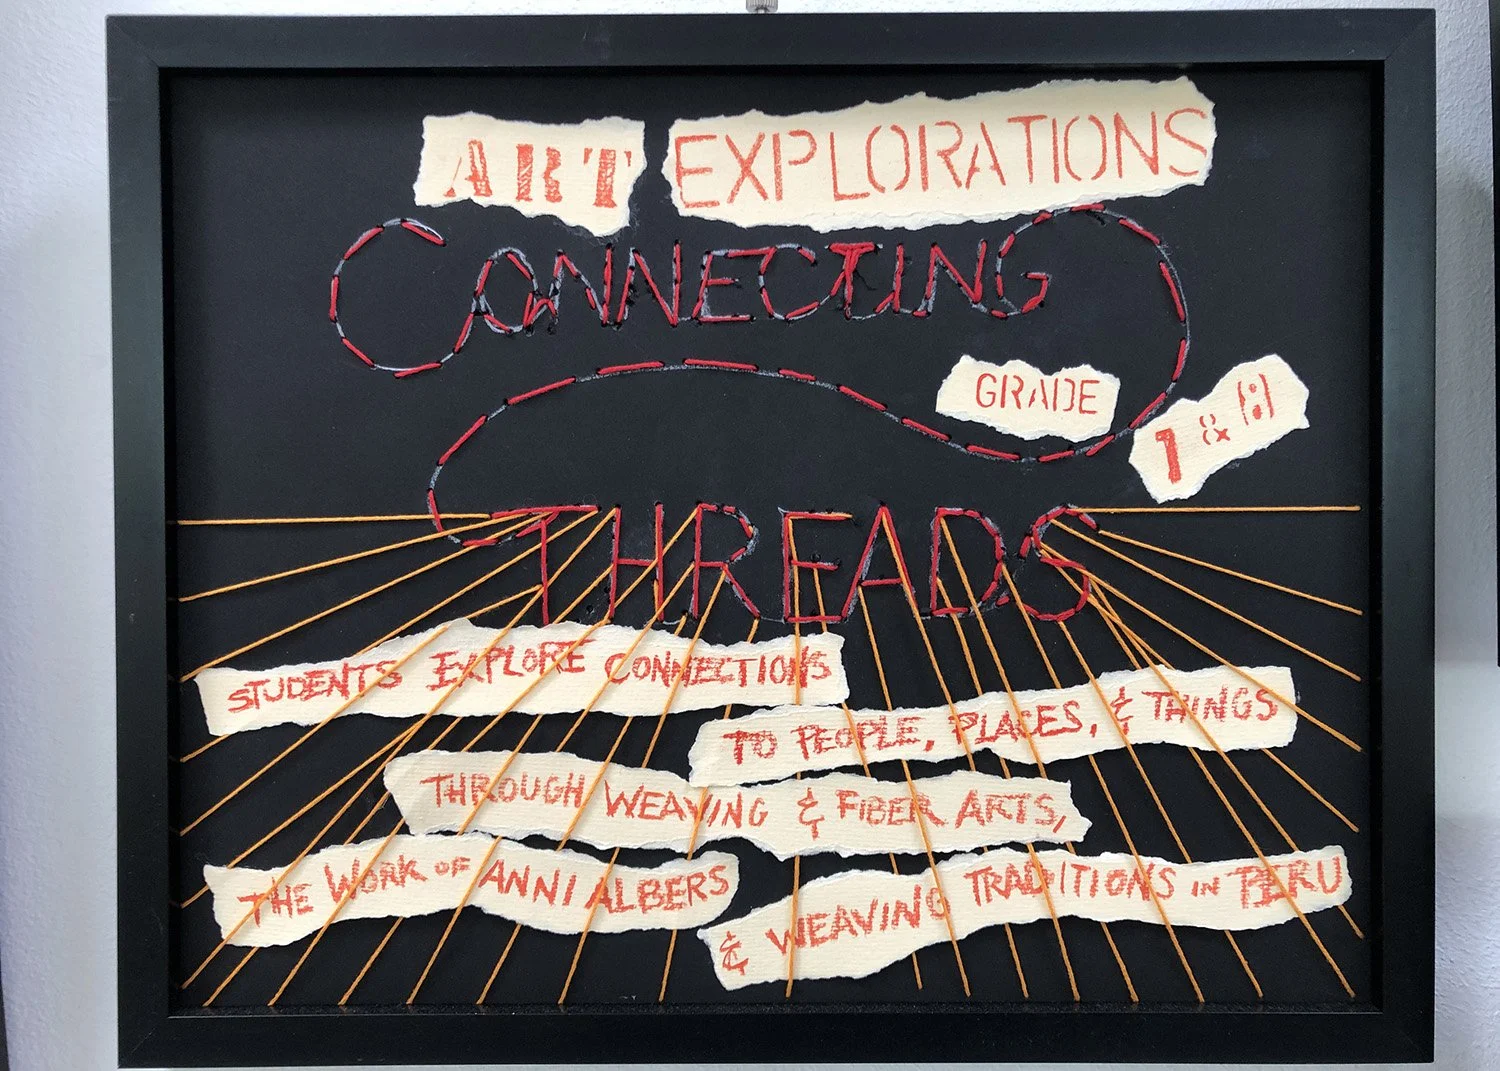 ART EXPLORATIONS
CONNECTING
GRADE
1 & 8
THREADS
STUDENTS EXPLORE CONNECTIONS
TO PEOPLE, PLACES, & THINGS
THROUGH WEAVING & FIBER ARTS,
THE WORK OF ANNI ALBERS
& WEAVING TRADITIONS IN PERU